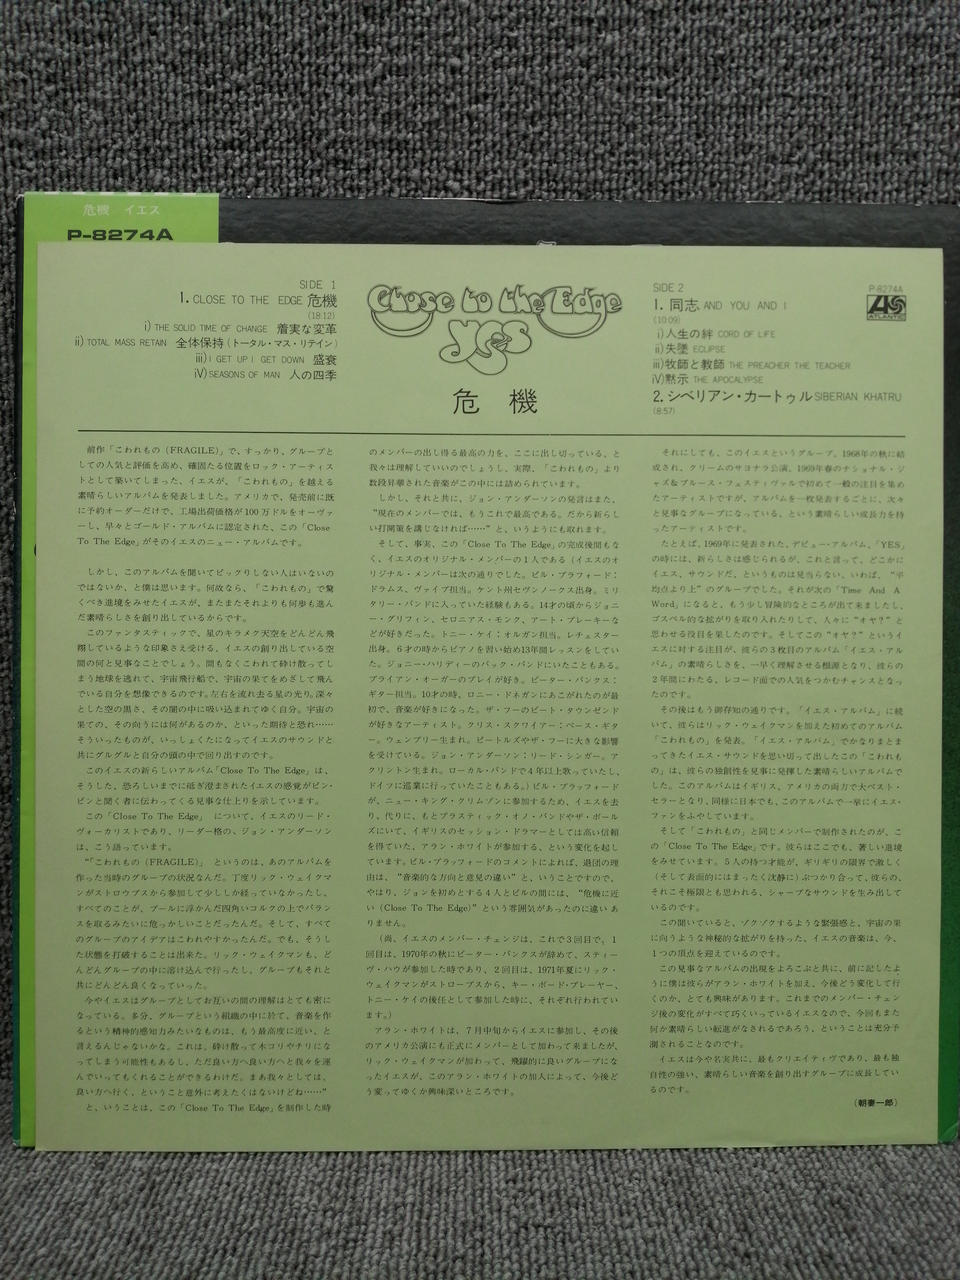 危機 イエス
P-8274A
SIDE 1
1. CLOSE TO THE EDGE 危機
(18:12)
i) THE SOLID TIME OF CHANGE 着実な変革
ii) TOTAL MASS RETAIN 全体保持 (トータル・マス・リテイン)
iii) I GET UP I GET DOWN 盛衰
iV) SEASONS OF MAN 人の四季
Close to the Edge
yes
危機
SIDE 2
1. 同志 AND YOU AND I
(10:09)
i) 人生の絆 CORD OF LIFE
ii) 失墜 ECLIPSE
iii) 牧師と教師 THE PREACHER THE TEACHER
iV) 黙示 THE APOCALYPSE
2. シベリアン・カートゥル SIBERIAN KHATRU
(8:57)
P-8274A
ATLANTIC
前作「こわれもの (FRAGILE)」で、すっかり、グループと
しての人気と評価を高め、確固たる位置をロック・アーティス
トとして築いてしまった、イエスが、「こわれもの」を越える
素晴らしいアルバムを発表しました。アメリカで、発売前に既
に予約オーダーだけで、工場出荷価格が100万ドルをオーヴァ
ーし、早々とゴールド・アルバムに認定された、この「Close
To The Edge」がそのイエスのニュー・アルバムです。
しかし、このアルバムを聞いてビックリしない人はいないの
ではないか、と僕は思います。何故なら、「こわれもの」で驚
くべき進境をみせたイエスが、またまたそれよりも何歩も進ん
だ素晴らしさを創り出しているからです。
このファンタスティックで、星のキラメク天空をどんどん飛
翔しているような印象さえ受ける、イエスの創り出している空
間の何と見事なことでしょう。間もなくこわれて砕け散ってし
まう地球を逃れて、宇宙飛行船で、宇宙の果てをめざして飛ん
でいる自分を想像できるのです。左右を流れ去る星の光り。深々
とした空の黒さ、その闇の中に吸い込まれてゆく自分。宇宙の
果ての、その向うには何があるのか、といった期待と恐れ……
そういったものが、いっしょくたになってイエスのサウンドと
共にグルグルと自分の頭の中で回り出すのです。
このイエスの新らしいアルバム「Close To The Edge」は、
そうした、恐ろしいまでに砥ぎ澄まされたイエスの感覚がビン・
ビンと聞く者に伝わってくる見事な仕上りを示しています。
この「Close To The Edge」 について、イエスのリード・
ヴォーカリストであり、リーダー格の、ジョン・アンダーソン
は、こう語っています。
“「こわれもの (FRAGILE)」 というのは、あのアルバムを
作った当時のグループの状況なんだ。丁度リック・ウェイクマ
ンがストロウブスから参加して少ししか経っていなかったし、
すべてのことが、プールに浮かんだ四角いコルクの上でバラン
スを取るみたいに危っかしいことだったんだ。そして、すべて
のグループのアイデアはこわれやすかったんだ。でも、そうし
た状態を打破することは出来た。リック・ウェイクマンも、ど
んどんグループの中に溶け込んで行ったし、グループもそれと
共にどんどん良くなっていった。
今やイエスはグループとしてお互いの間の理解はとても密に
なっている。多分、グループという組織の中に於て、音楽を作
るという精神的感知力みたいなものは、もう最高度に近い、と
言えるんじゃないかな。これは、砕け散って木コリやチリにな
ってしまう可能性もあるし、ただ良い方へ良い方へと我々を運
んでいってもくれることができるわけだ。まあ我々としては、
良い方へ行く、ということ意外に考えたくはないけどね……”
と、いうことは、この「Close To The Edge」を制作した時
のメンバーの出し得る最高の力を、ここに出し切っている、と
我々は理解していいのでしょうし、実際、「こわれもの」より
数段昇華された音楽がこの中には詰められています。
しかし、それと共に、ジョン・アンダーソンの発言はまた、
“現在のメンバーでは、もうこれで最高である。だから新らし
い打開策を講じなければ……”と、いうようにも取れます。
そして、事実、この「Close To The Edge」の完成後間もな
く、イエスのオリジナル・メンバーの1人である (イエスのオ
リジナル・メンバーは次の通りでした。ビル・ブラフォード：
ドラムス、ヴァイブ担当。ケント州セヴンノークス出身。ミリ
タリー・バンドに入っていた経験もある。14才の頃からジョニ
ー・グリフィン、セロニアス・モンク、アート・ブレーキーな
どが好きだった。トニー・ケイ：オルガン担当。レチェスター
出身。6才の時からピアノを習い始め13年間レッスンをしてい
た。ジョニー・ハリディーのバック・バンドにいたこともある。
ブライアン・オーガーのプレイが好き。ピーター・バンクス：
ギター担当。10才の時、ロニー・ドネガンにあこがれたのが最
初で、音楽が好きになった。ザ・フーのピート・タウンゼンド
が好きなアーティスト。クリス・スクワイアー：ベース・ギタ
ー。ウェンブリー生まれ。ビートルズやザ・フーに大きな影響
を受けている。ジョン・アンダーソン：リード・シンガー。ア
クリントン生まれ。ローカル・バンドで4年以上歌っていたし、
ドイツに巡業に行っていたこともある。) ビル・ブラッフォード
が、ニュー・キング・クリムゾンに参加するため、イエスを去
り、代りに、もとプラスティック・オノ・バンドやザ・ボール
ズにいて、イギリスのセッション・ドラマーとしては高い信頼
を得ていた、アラン・ホワイトが参加する、という変化を起し
ています。ビル・ブラッフォードのコメントによれば、退団の理
由は、“音楽的な方向と意見の違い”と、いうことですので、
やはり、ジョンを初めとする4人とビルの間には、“危機に近
い (Close To The Edge)”という雰囲気があったのに違いあ
りません。
(尚、イエスのメンバー・チェンジは、これで3回目で、1
回目は、1970年の秋にピーター・バンクスが辞めて、スティー
ヴ・ハウが参加した時であり、2回目は、1971年夏にリック・
ウェイクマンがストローブスから、キー・ボード・プレーヤー、
トニー・ケイの後任として参加した時に、それぞれ行われてい
ます。)
アラン・ホワイトは、7月中旬からイエスに参加し、その後
のアメリカ公演にも正式にメンバーとして加わって来ましたが、
リック・ウェイクマンが加わって、飛躍的に良いグループにな
ったイエスが、このアラン・ホワイトの加入によって、今後ど
う変ってゆくか興味深いところです。
それにしても、このイエスというグループ、1968年の秋に結
成され、クリームのサヨナラ公演、1969年春のナショナル・ジ
ャズ＆ブルース・フェスティヴァルで初めて一般の注目を集め
たアーティストですが、アルバムを一枚発表するごとに、次々
と見事なグループになっている、という素晴らしい成長力を持
ったアーティストです。
たとえば、1969年に発表された、デビュー・アルバム、「YES」
の時には、新らしさは感じられるが、これと言って、どこかに
イエス、サウンドだ、というものは見当らない、いわば、“平
均点より上”のグループでした。それが次の「Time And A
Word」になると、もう少し冒険的なところが出て来ましたし、
ゴスペル的な拡がりを取り入れたりして、人々に“オヤ？”と
思わせる役目を果したのです。そしてこの“オヤ？”というイ
エスに対する注目が、彼らの3枚目のアルバム「イエス・アル
バム」の素晴らしさを、一早く理解させる根源となり、彼らの
2年間にわたる、レコード面での人気をつかむチャンスとなっ
たのです。
その後はもう御存知の通りです。「イエス・アルバム」に続
いて、彼らはリック・ウェイクマンを加えた初めてのアルバム
「こわれもの」を発表。「イエス・アルバム」でかなりまとま
ってきたイエス・サウンドを思い切って出したこの「こわれも
の」は、彼らの独創性を見事に発揮した素晴らしいアルバムで
した。このアルバムはイギリス、アメリカの両方で大ベスト・
セラーとなり、同様に日本でも、このアルバムで一挙にイエス・
ファンをふやしています。
そして「こわれもの」と同じメンバーで制作されたのが、こ
の「Close To The Edge」です。彼らはここでも、著しい進境
をみせています。5人の持つ才能が、ギリギリの限界で激しく
(そして表面的にはまったく沈静に) ぶつかり合って、彼らの、
それこそ極限とも思われる、シャープなサウンドを生み出して
いるのです。
この聞いていると、ゾクゾクするような緊張感と、宇宙の果
に向うような神秘的な拡がりを持った、イエスの音楽は、今、
1つの頂点を迎えているのです。
この見事なアルバムの出現をよろこぶと共に、前に記したよ
うに僕は彼らがアラン・ホワイトを加え、今後どう変化して行
くのか、とても興味があります。これまでのメンバー・チェン
ジ後の変化がすべて巧くいっているイエスなので、今回もまた
何か素晴らしい転進がなされるであろう、ということは充分予
測されることなのです。
イエスは今や名実共に、最もクリエイティヴであり、最も独
自性の強い、素晴らしい音楽を創り出すグループに成長してい
るのです。
(朝妻一郎)